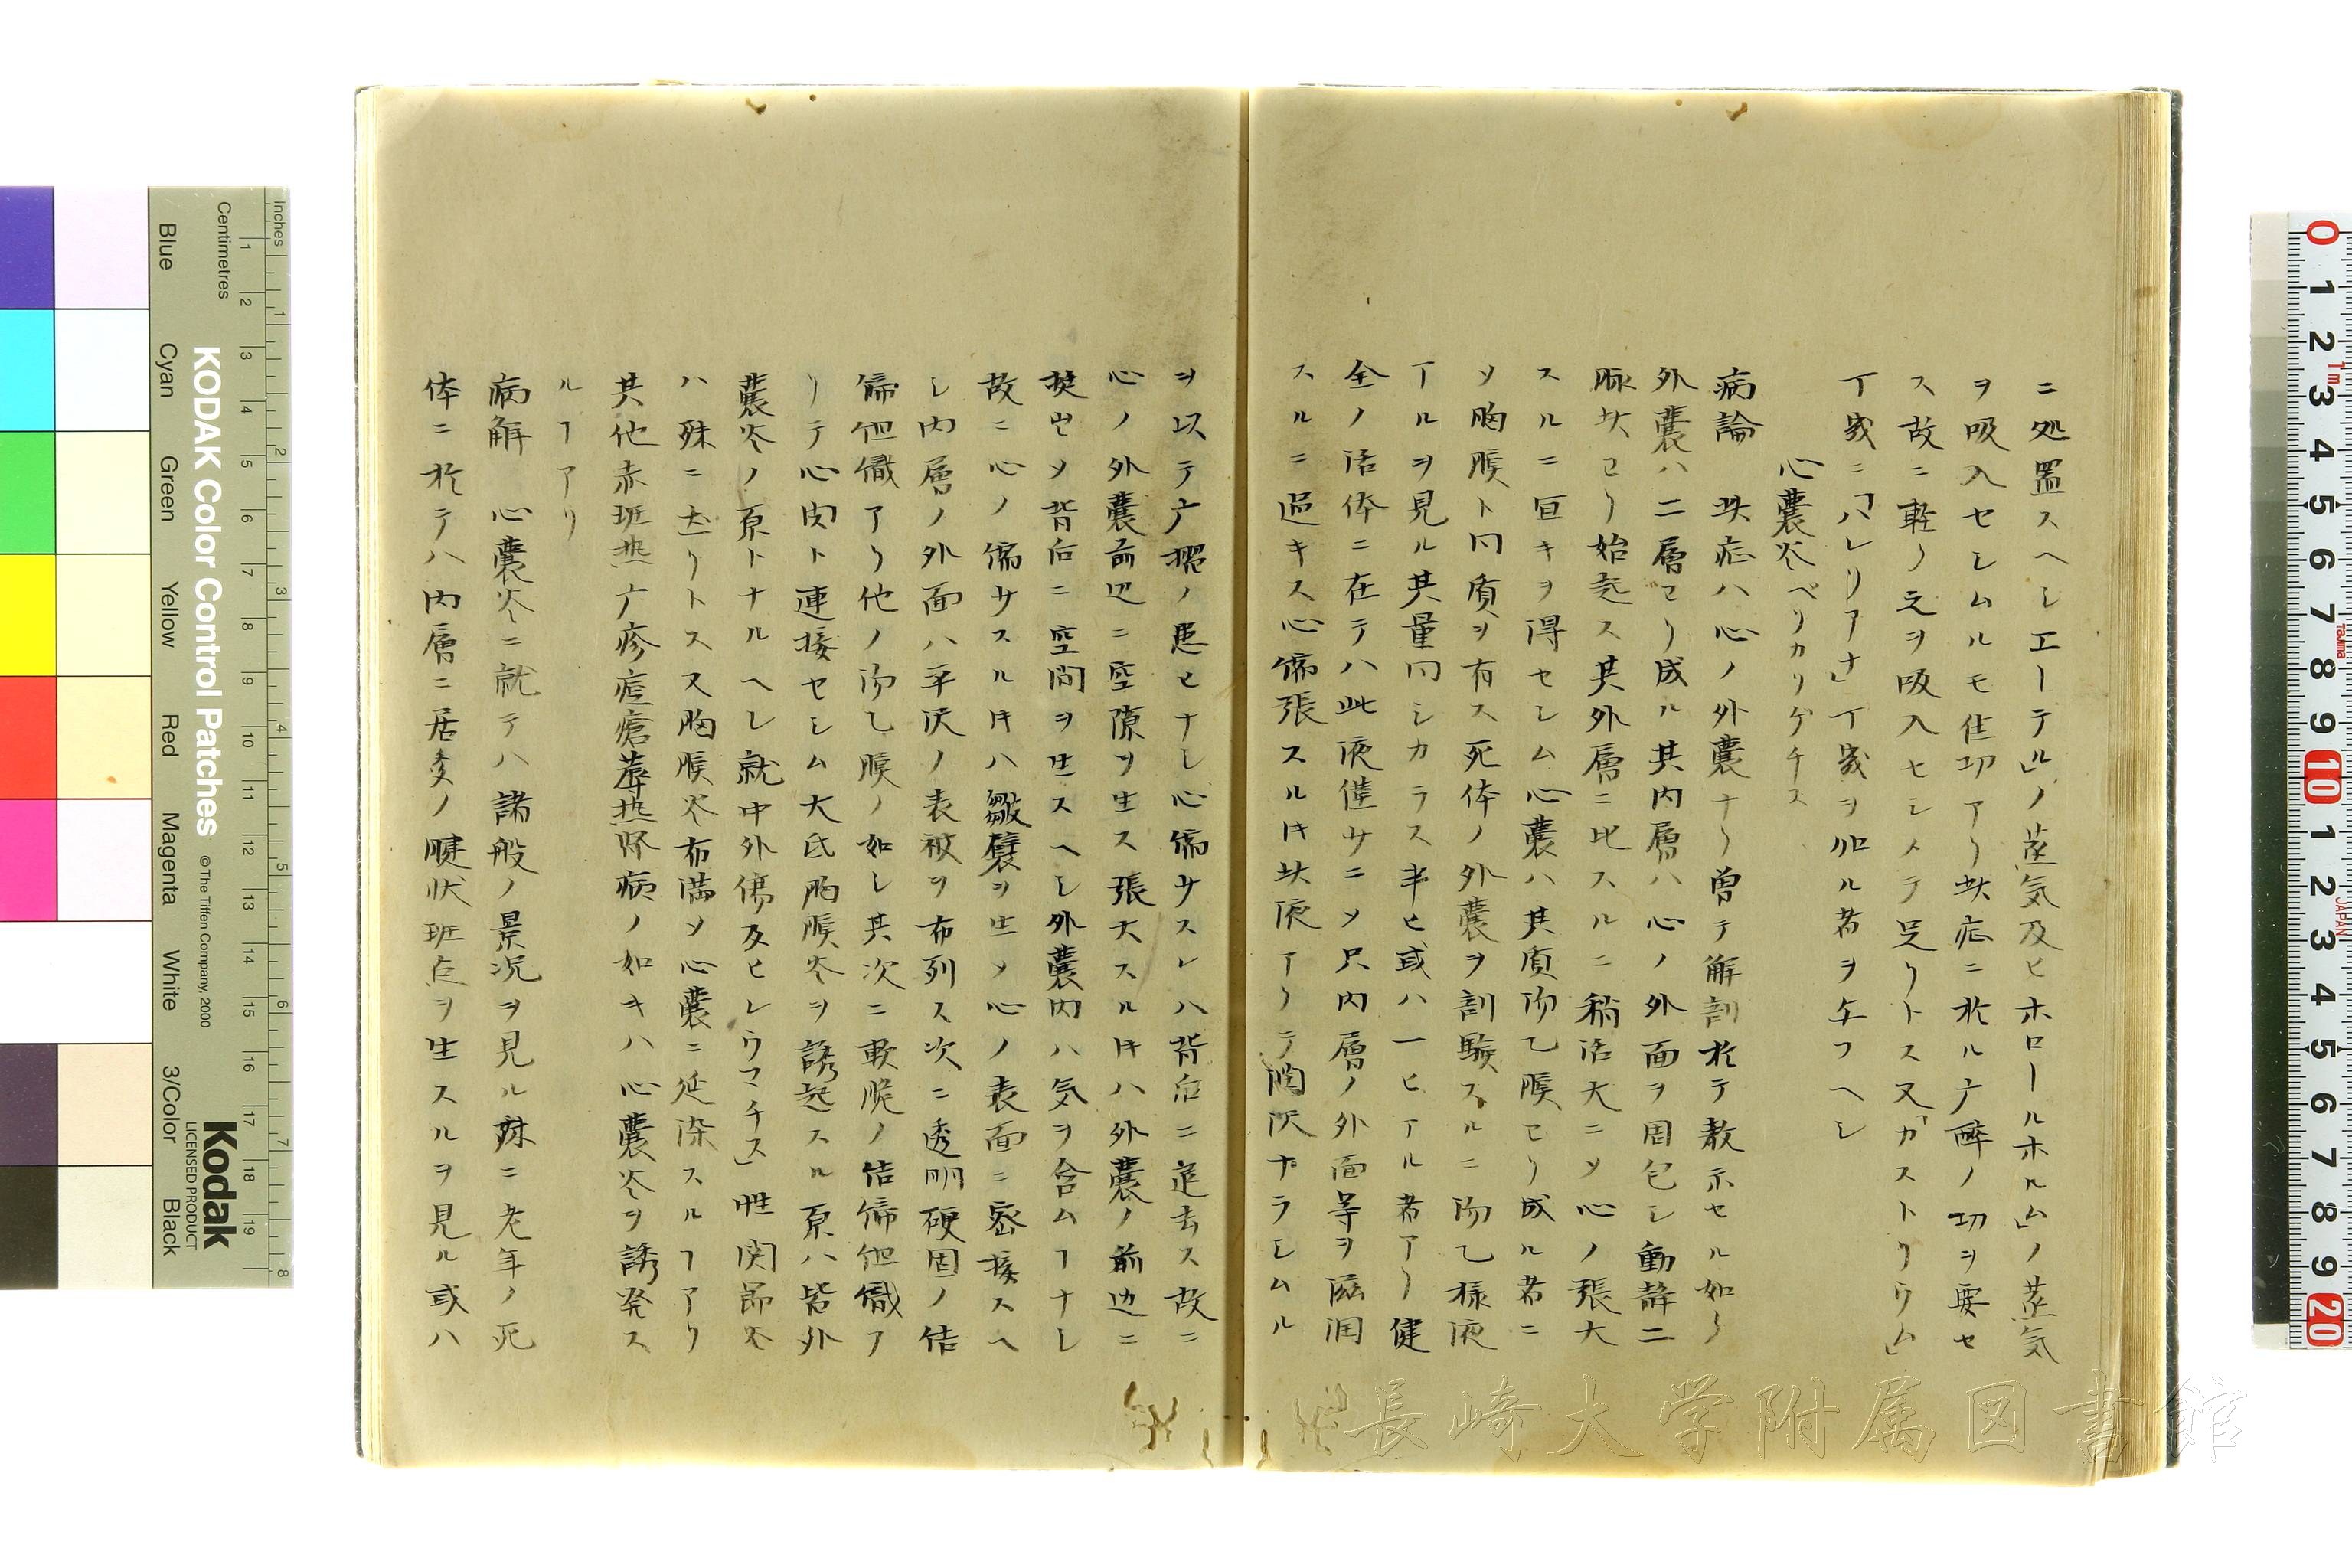 ニ処置スヘシエーテル」ノ蒸気及ヒホロールホルム」ノ蒸気
ヲ吸入セシムルモ佳功アリ此症ニ於ル广酔ノ切ヲ要セ
ス故ニ軽ク之ヲ吸入セシメテ足リトス又「カストリウム」
丁幾ニ「バレリアナ」丁幾ヲ加ル者ヲ与フヘシ
心嚢炎ペリカリヂチス
病論 此症ハ心ノ外嚢ナリ曽テ解剖於テ教示セル如ク
外嚢ハ二層ヨリ成ル其内層ハ心ノ外面ヲ固包シ動静二
脉状ヨリ始起ス其外層ニ比スルニ稍活大ニメ心ノ張大
スルニ宜キヲ得セシム心嚢ハ其質沕乙膜ヨリ成ル者ニ
メ胸膜ト同質ヲ有ス死体ノ外嚢ヲ剖験スルニ沕乙様液
アルヲ見ル其量同シカラス半ヒ或ハ一ヒアル者アリ健
全ノ活体ニ在テハ此液僅サニメ只内層ノ外面等ヲ滋潤
スルニ過キス心偏張スル𪜈此液アリテ潤沢ナラシムル
ヲ以テ广擦ノ患ヒナシ心偏サスレハ背后ニ退去ス故ニ
心ノ外嚢前辺ニ空隙ヲ生ス張大スル𪜈ハ外嚢ノ前辺ニ
メ背后ニ空間ヲ生スヘシ外嚢内ハ気ヲ含ムヿナシ
故ニ心ノ偏サスル𪜈ハ皺襞ヲ生メ心ノ表面ニ密接スヘ
シ内層ノ外面ハ平沢ノ表被ヲ布列ス次ニ透明硬固ノ佶
㣇他織アリ他ノ沕乙膜ノ如シ其次ニ軟脆ノ佶㣇他織ア
リテ心肉ト連接セシム大氐胸膜炎ヲ誘起スル原ハ皆外
嚢炎ノ原トナルヘシ就中外傷及ヒレウマチス」性関節炎
ハ殊ニ然リトス又胸膜炎布満メ心嚢ニ延染スルヿアリ
其他赤斑熱广疹痘瘡蓐熱腎病ノ如キハ心嚢炎ヲ誘発ス
ルヿアリ
病解 心嚢炎ニ就テハ諸般ノ景況ヲ見ル殊ニ老年ノ死
体ニ於テハ内層ニ居多ノ腱状班点ヲ生スルヲ見ル或ハ
KODAK Color Control Patches
© The Tiffen Company, 2000
Kodak
LICENSED PRODUCT
Inches
Centimetres
Blue
Cyan
Green
Yellow
Red
Magenta
White
3/Color
Black
長崎大学附属図書館